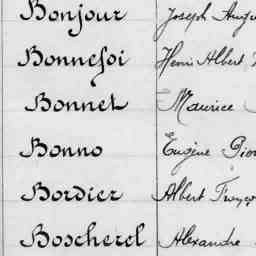 Bonjour Joseph
Bonnefoi Henri Albert
Bonnet Maurice
Bonno Eugène
Bordier Albert
Boscherel Alexandre